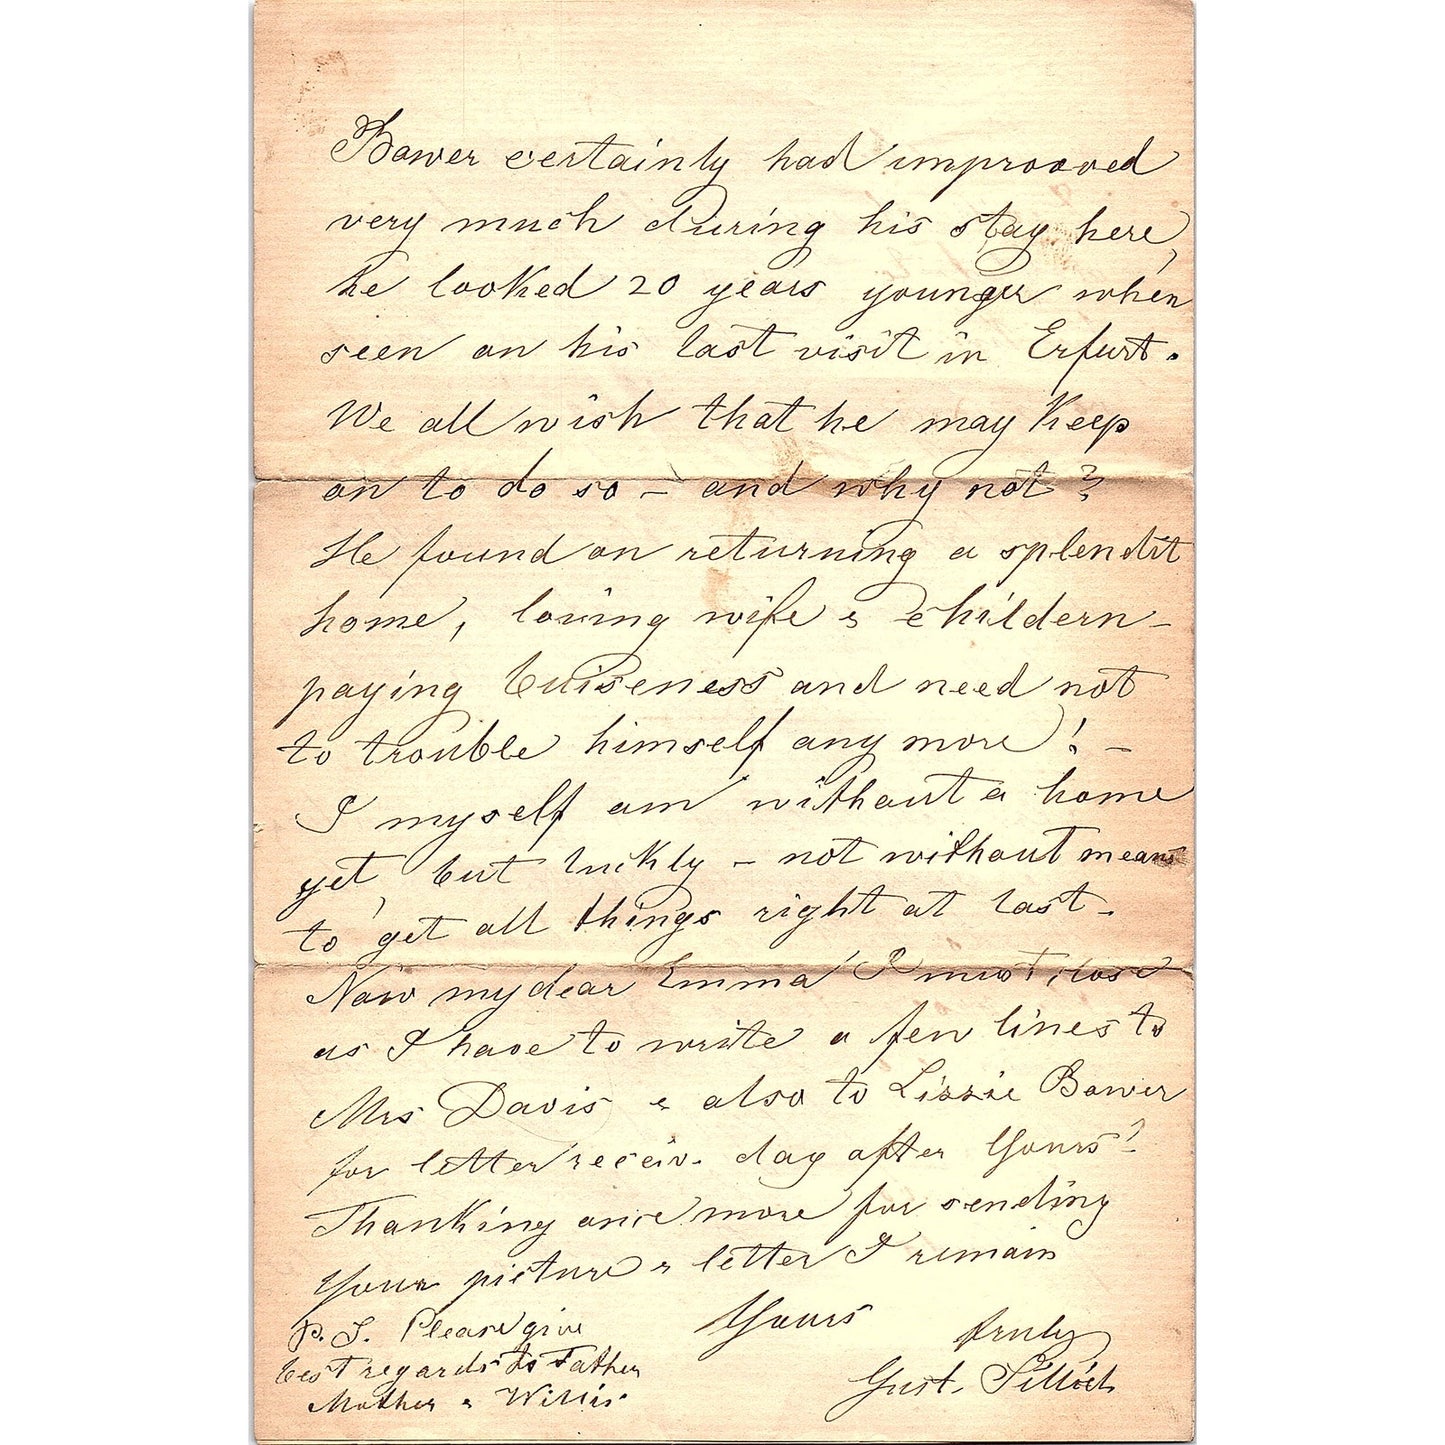 Bower certainly had improoved
very much during his stay here,
he looked 20 years younger when
seen on his last visit in Erfurt.
We all wish that he may Keep
on to do so – and why not?
He found on returning a splendit
home, loving wife & childern –
paying buiseness and need not
to trouble himself any more! –
I myself am without a home
yet, but luckly – not without means
to get all things right at last –
Now my dear Emma I must close
as I have to write a few lines to
Mrs Davis & also to Lizzie Bower
for letter receiv. day after Yours!
Thanking once more for sending
Your picture & letter I remain
Yours truly
Gust.
P. S. Please give
best regards to Father
Mother & Willis.